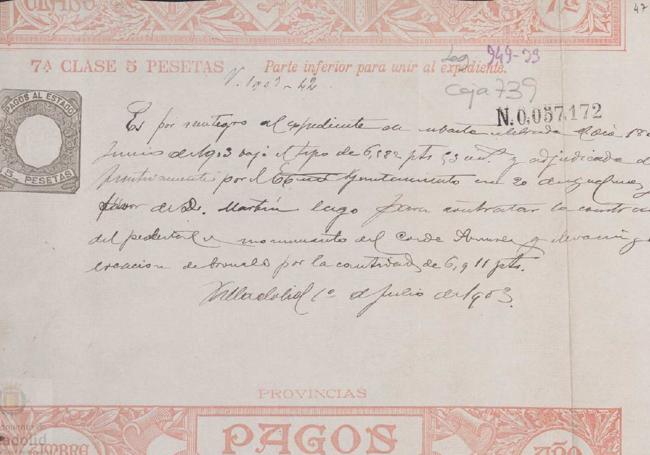 47
7ª CLASE 5 PESETAS Parte inferior para unir al expediente.
V. 1903-42
Leg 949-33
Caja 739
PAGOS AL ESTADO
5 PESETAS
N.0,057,172
Es por reintegro al expediente de subasta celebrada el dia 18 de
Junio de 1903 bajo el tipo de 6,982 pts y adjudicada de
finitivamente por el Ayuntamiento en 20 del
favor de D. Martin Lago para contratar la construc
del pedestal monumento del Conde Ansurez y
colocacion de por la cantidad de 6,911 pts.
Valladolid 1º de Julio de 1903.
PROVINCIAS
TIMBRE
PAGOS
AÑO